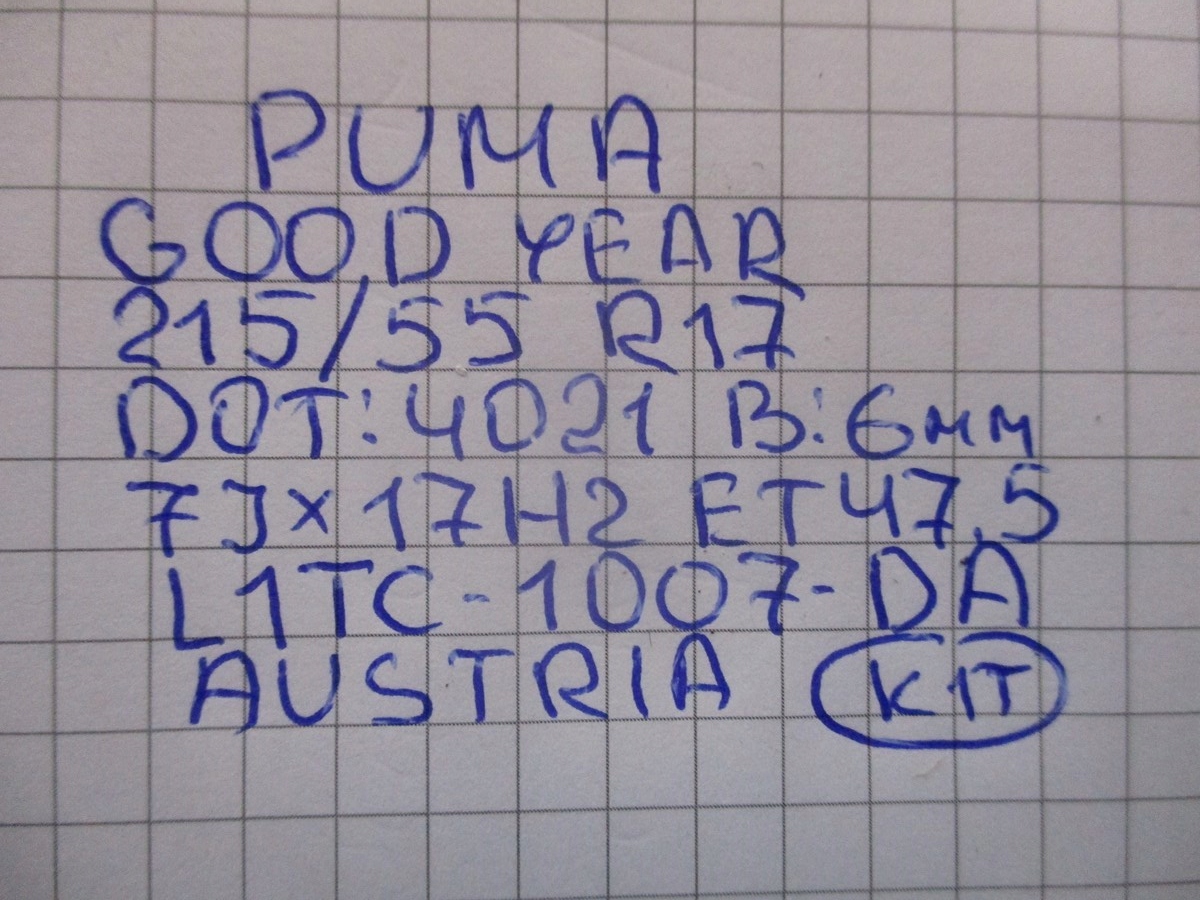 PUMA
GOOD YEAR
215/55 R17
DOT:4021 B:6мм
7J×17H2 ET47,5
L1TC-1007-DA
AUSTRIA KIT